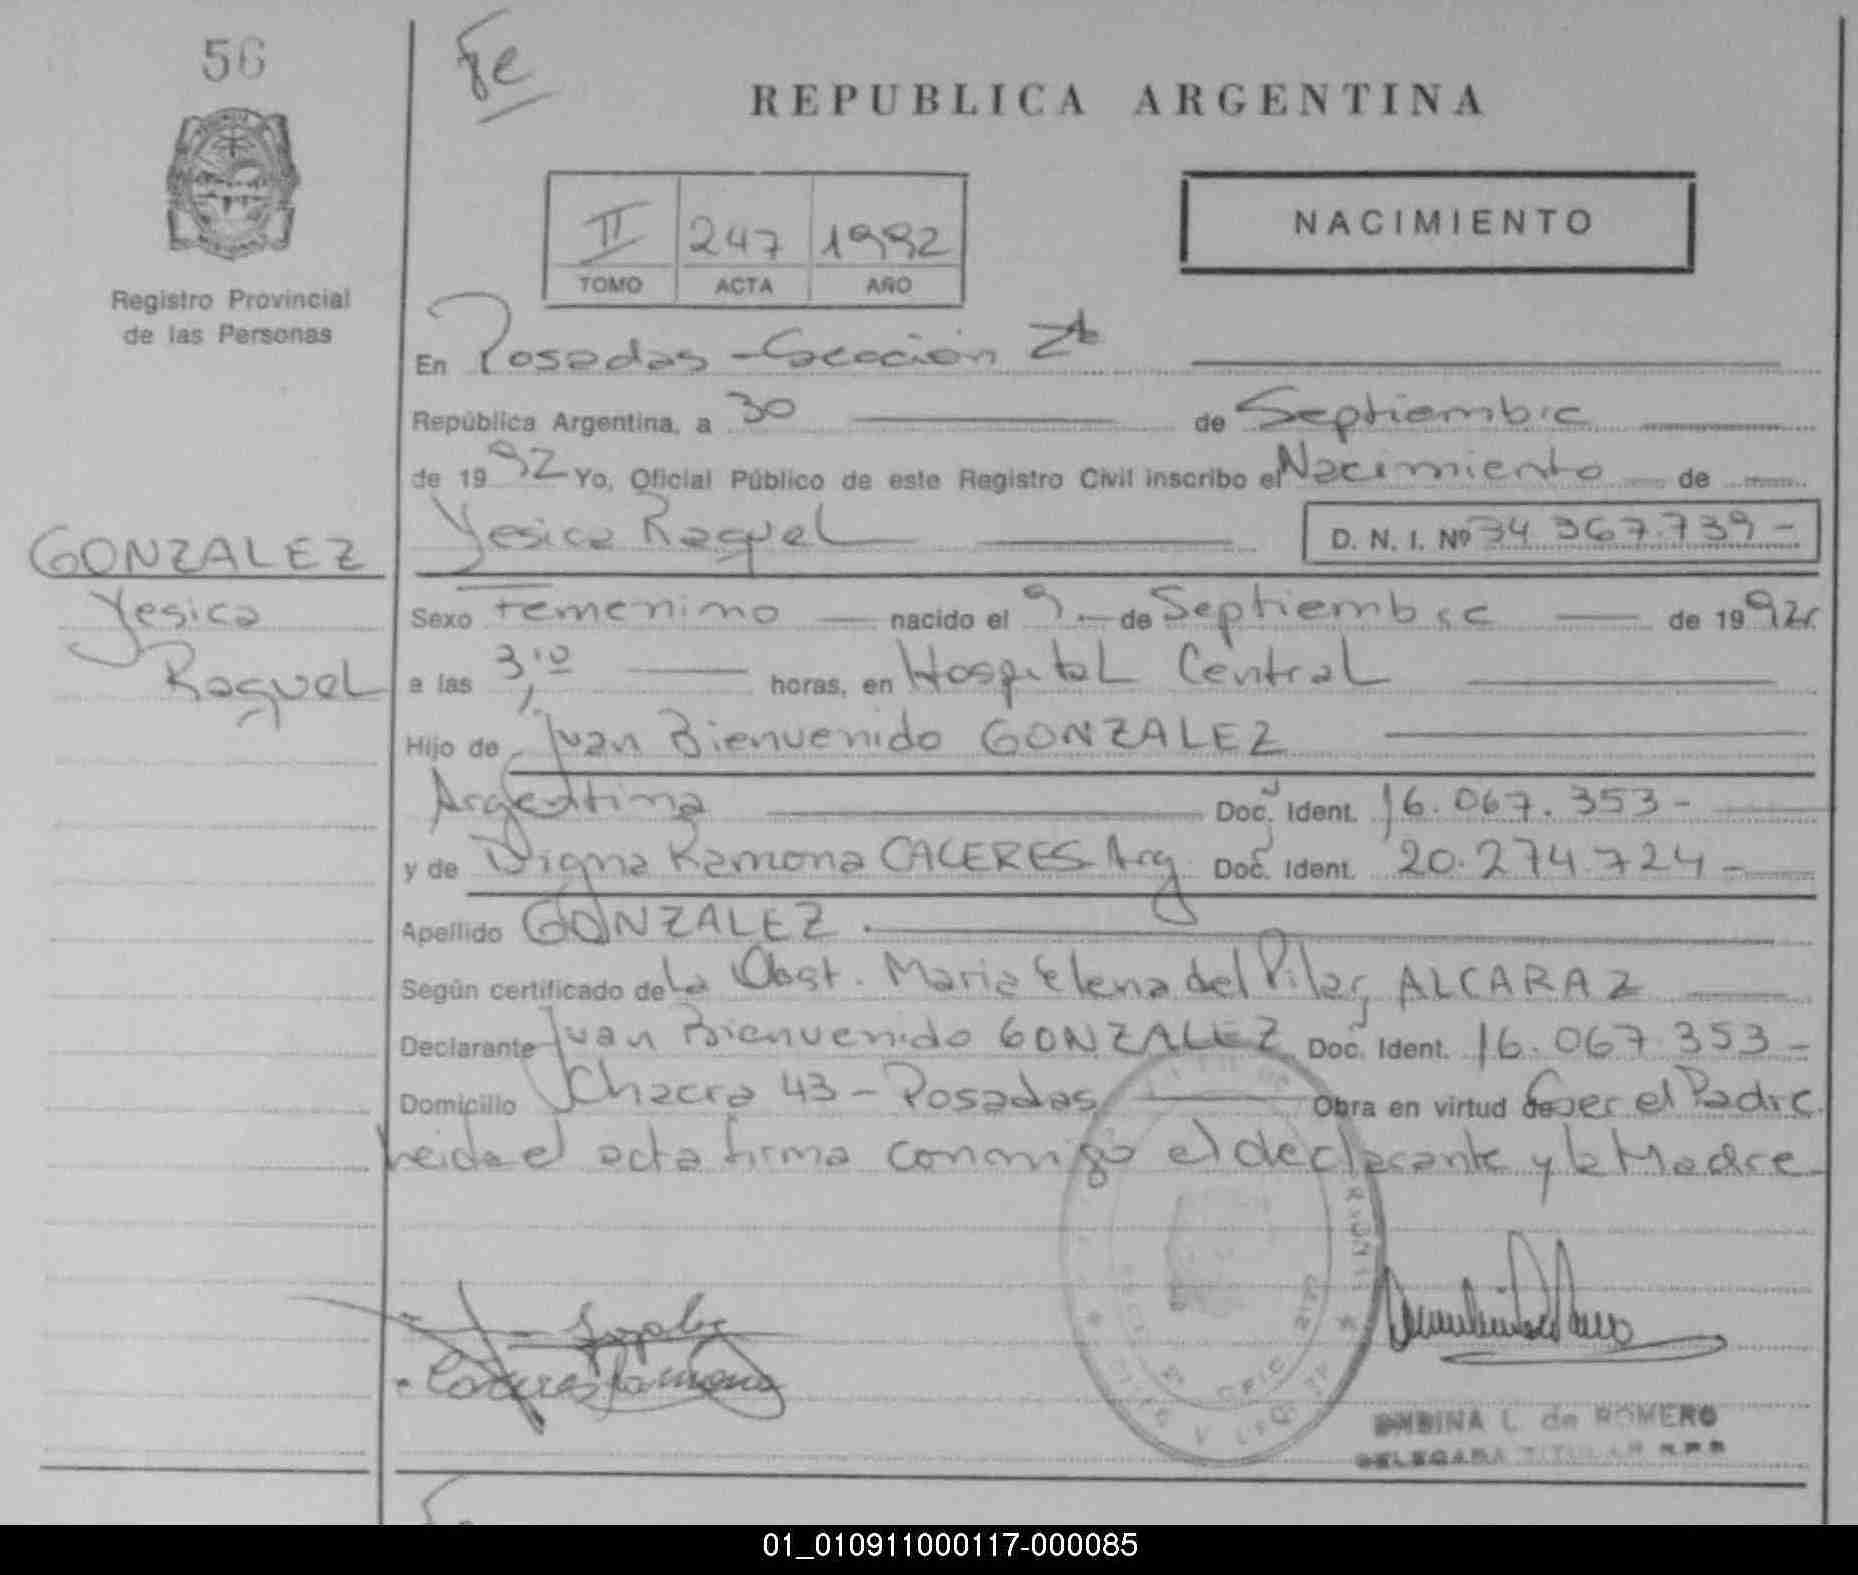 56
Fe
REPUBLICA ARGENTINA
NACIMIENTO
II 247 1992
TOMO ACTA AÑO
Registro Provincial
de las Personas
En Posadas - Sección 2ª
República Argentina, a 30 de Septiembre
de 1992 Yo, Oficial Público de este Registro Civil inscribo el Nacimiento de
Yesica Raquel D. N. I. Nº 34.367.739-
GONZALEZ
Yesica
Raquel
Sexo Femenino nacido el 9.- de Septiembre de 1992
a las 3,10 horas, en Hospital Central
Hijo de Juan Bienvenido GONZALEZ
Argentina Doc. Ident. 16.067.353-
y de Digna Ramona CACERES Arg. Doc. Ident. 20.274.724-
Apellido GONZALEZ.
Según certificado de la Obst. Maria Elena del Pilar ALCARAZ
Declarante Juan Bienvenido GONZALEZ Doc. Ident. 16.067.353-
Domicilio Chacra 43 - Posadas Obra en virtud de Ser el Padre.
Leida el acta firma conmigo el declarante y la Madre
Caceres Ramona
L. de ROMERO
DELEGADA TITULAR R.P.P.
01_010911000117-000085